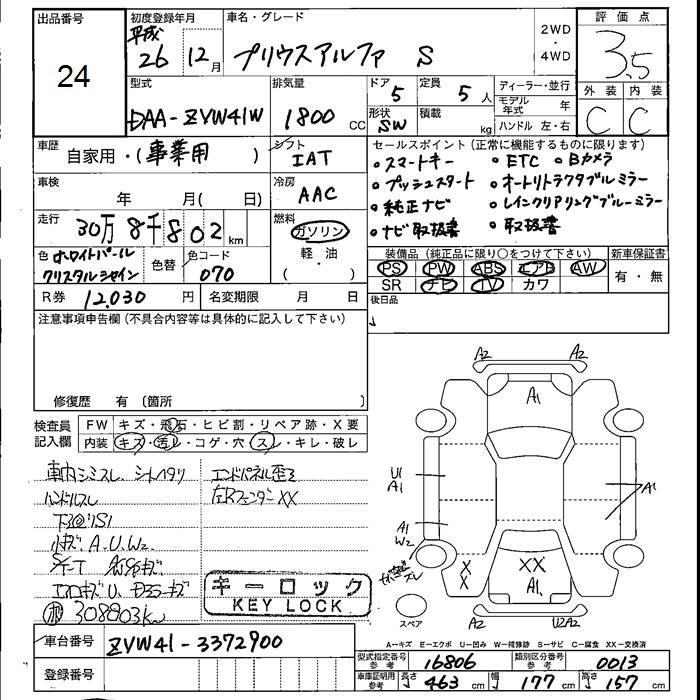 出品番号
24
初度登録年月
平成
26 12月
車名・グレード
プリウスアルファ S
2WD
・
4WD
評価点
3.5
外装 内装
C C
型式
DAA-ZVW41W
排気量
1800 CC
ドア
5
定員
5人
形状
SW
積載
kg
ディーラー・並行
モデル年式 年
ハンドル 左・右
車歴
自家用・(事業用 )
シフト
IAT
車検
年 月( 日)
冷房
AAC
走行
30万8千802km
燃料
ガソリン
・
軽・油
( )
色 ホワイトパール
クリスタルシャイン
色替
色コード
070
R券 12,030円
名変期限 月 日
セールスポイント(正常に機能するものに限ります)
•スマートキー •ETC •Bカメラ
•プッシュスタート •オートリトラクタブルミラー
•純正ナビ •レインクリアリングブルーミラー
•ナビ取扱書 •取扱書
装備品(純正品に限り○をつけて下さい)
PS PW ABS エアB AW
SR ナビ TV カワ
新車保証書
有・無
後日品
注意事項申告欄(不具合内容等は具体的に記入して下さい)
修復歴 有(箇所 )
検査員
記入欄
FW キズ・飛石・ヒビ割・リペア跡・X要
内装 キズ・汚れ・コゲ・穴・スレ・キレ・破レ
車内シミスレ、シートヘタリ
ハンドルスレ
下回りS1
小キズ A.U.W2
エアロキズU、
308803km
エンドパネル歪ミ
左Rフェンダー XX
キーロック
KEY LOCK
A2 A2
A1
U1
A1
A1
A1
W2
スレ
X
X
XX
A1
A2 U2A2
スペア
A-キズ E-エクボ U-凹み W-補修跡 S-サビ C-腐食 XX-交換済
車台番号 ZVW41-3372900
登録番号
型式指定番号
参考
16806
類別区分番号
参考
0013
車庫証明用
参考
長さ 463cm 幅 177cm 高さ 157cm